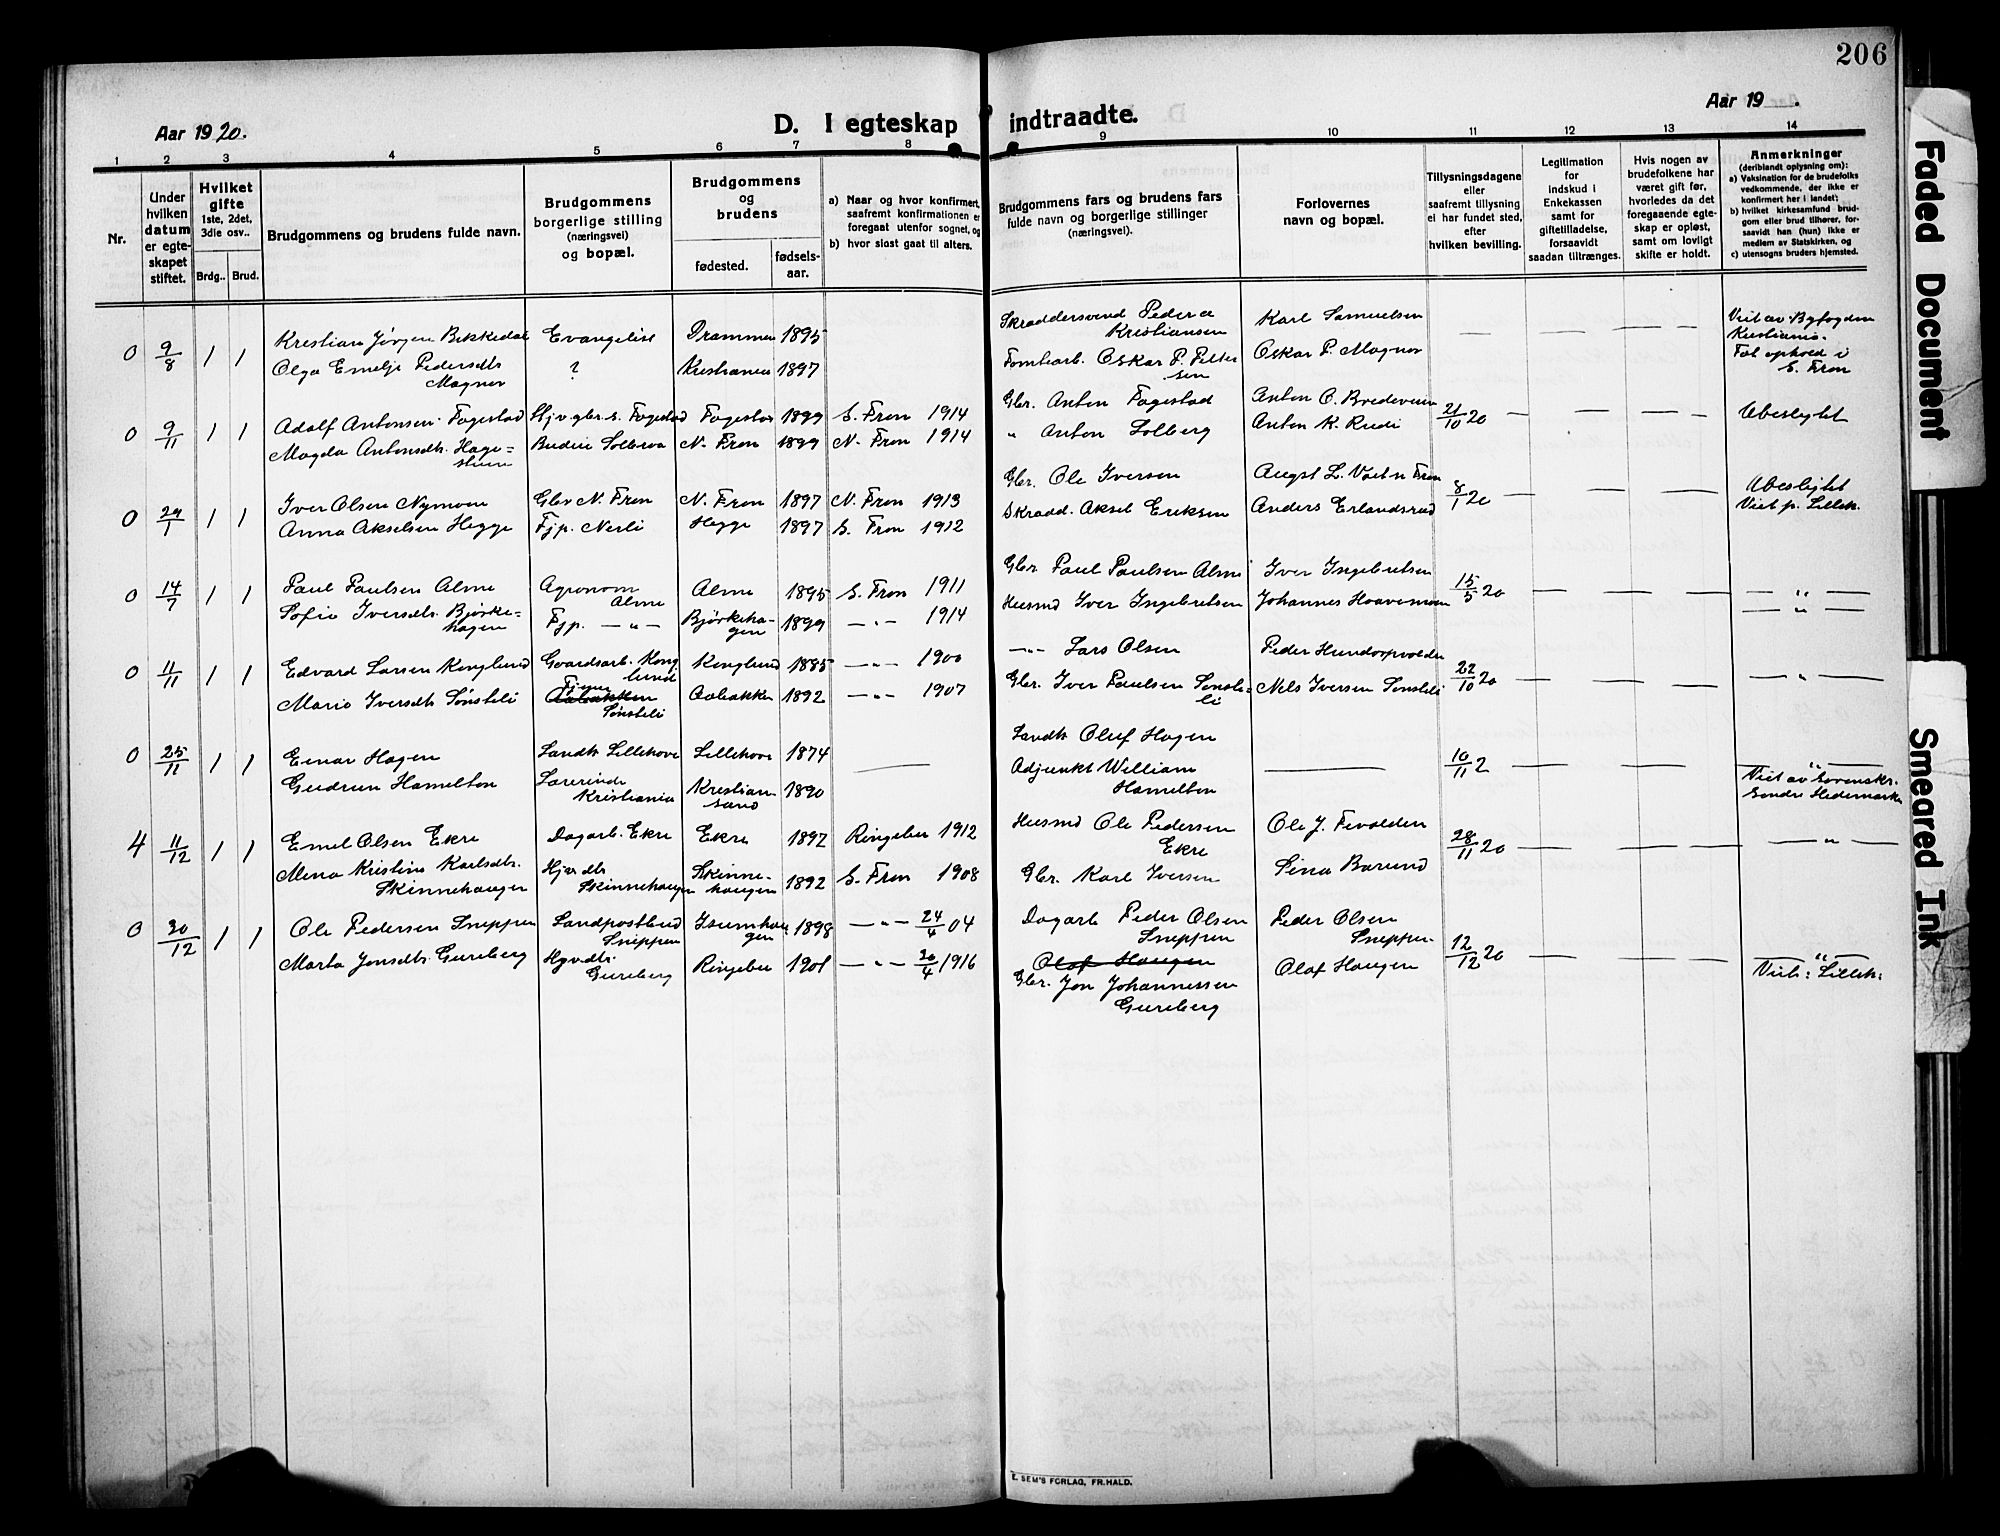 206
Aar 1920.
D. I egteskap indtraadte.
Aar 19 .
1 2 3 4 5 6 7 8 9 10 11 12 13 14
Nr.
Under hvilken datum er egteskapet stiftet.
Hvilket gifte
1ste, 2det, 3die osv..
Brdg.. Brud.
Brudgommens og brudens fulde navn.
Brudgommens borgerlige stilling (næringsvei) og bopæl.
Brudgommens og brudens
fødested.
fødsels-aar.
a) Naar og hvor konfirmert, saafremt konfirmationen er foregaat utenfor sognet, og
b) hvor sidst gaat til alters.
Brudgommens fars og brudens fars fulde navn og borgerlige stillinger (næringsvei).
Forlovernes navn og bopæl.
Tillysningsdagene eller saafremt tillysning ei har fundet sted, efter hvilken bevilling.
Legitimation for indskud i Enkekassen samt for giftetilladelse, forsaavidt saadan tiltrænges.
Hvis nogen av brudefolkene har været gift før, hvorledes da det foregaaende egteskap er opløst, samt om lovligt skifte er holdt.
Anmerkninger
(deriblandt oplysning om):
a) Vaksination for de brudefolks vedkommende, der ikke er konfirmert her i landet;
b) hvilket kirkesamfund brudgom eller brud tilhører, forsaavidt han (hun) ikke er medlem av Statskirken, og
c) utensogns bruders hjemsted.
0 9/8 1 1 Kristian Jørgen Bekkedal Evangelist Drammen 1895 Skræddersvend Peder Kristiansen Karl Samuelsen — — — — Viet av Byfogden Kristiania.
Olga Emelje Pedersdtr Magnor ? Kristiania 1897 Oskar P. Pettersen Oskar P. Magnor ophold i S. Fron
0 9/11 1 1 Adolf Antonsen Fagestad Hjv. gbr. s. Fagestad Fagestad 1899 S. Fron 1914 Gbr. Anton Fagestad Anton O. 21/10 20 — — — Ubeslegtet
Magda Antonsdtr. Budeie N. Fron 1899 N. Fron 1914 " Anton Solberg Anton K. Rudi
0 29/1 1 1 Iver Olsen Nymoen Gbr N. Fron N. Fron 1897 N. Fron 1913 Gbr. Ole Iversen 8/1 20 — — — Ubeslegtet
Anna Akselsen Hegge Tjp. Nerli Hegge 1897 S. Fron 1912 Skrædd. Aksel Eriksen Anders Erlandsrud Viet p. Lilleh.
0 14/7 1 1 Paul Paulsen Alme Agronom Alme Alme 1895 S. Fron 1911 Gbr Paul Paulsen Alme Iver Ingebretsen 15/5 20 — — — — " —
Sofie Iversdtr. Bjørkehagen Tjp. — " — Bjørkehagen 1899 — " — 1914 Husmd Iver Ingebretsen Johannes — " —
0 11/11 1 1 Edvard Larsen Konglund Gaardsarb. Konglund Konglund 1885 — " — 1900 — " — Lars Olsen Peder 22/10 20 — — — — " —
Marie Iversdtr Sønsteli Tjene Aabakken Sønsteli Aabakken 1892 — " — 1907 Gbr. Iver Paulsen Sønsteli Nels Iversen Sønsteli
0 25/11 1 1 Einar Hagen Landh. Lillehove Lillehove 1874 — Landh Oluf Hagen — 10/11 2 — — — — " —
Gudrun Hamelton Lærerinde Kristiania Kristiansand 1890 Adjunkt William Hamelton Viet av Sorenskr. Søndre Hedemarken
4 11/12 1 1 Emel Olsen Ekre Dagarb. Ekre Ekre 1892 Ringebu 1912 Husmd Ole Pedersen Ekre Ole J. Fevolden 28/11 20 — — — — " —
Mena Kristine Karlsdtr. Skinnehaugen Hjv dtr. Skinnehaugen Skinnehaugen 1892 S. Fron 1908 Gbr. Karl Iversen Sina Barund
0 30/12 1 1 Ole Pedersen Sneppen Landpostbud Sneppen Isumhaugen 1898 — " — 24/4 04 Dagarb Peder Olsen Sneppen Peder Olsen Sneppen. 12/12 20 — — — — " —
Marta Jonsdtr. Gureberg Hjvdtr. Gureberg Ringebu 1901 — " — 30/4 1916 Olaf Haugen Gbr. Jon Johannessen Gureberg Olaf Haugen Lilleh.
E. SEM'S FORLAG, FR.HALD.
Faded Document
Smeared Ink